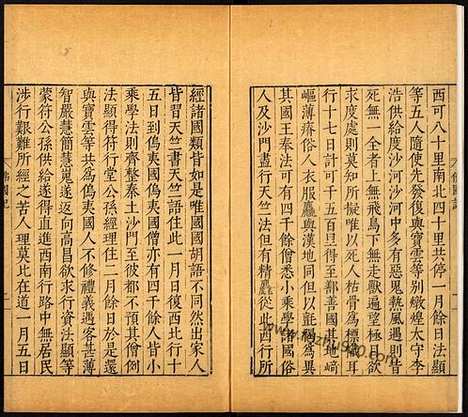 西可八十里南北四十里共停一月餘日法顯
等五人隨使先發復與寶雲等別燉煌太守李
浩供給度沙河沙河中多有惡鬼熱風遇則皆
死無一全者上無飛鳥下無走獸遍望極目欲
求度處則莫知所擬唯以死人枯骨為標幟耳
行十七日計可千五百里得至鄯善國其地崎
嶇薄瘠俗人衣服麤與漢地同但以氈褐為異
其國王奉法可有四千餘僧悉小乘學諸國俗
人及沙門盡行天竺法但有精麤從此西行所
佛國記
經諸國類皆如是唯國國胡語不同然出家人
皆習天竺書天竺語住此一月日復西北行十
五日到㑥夷國㑥夷國僧亦有四千餘人皆小
乘學法則齊整秦土沙門至彼都不預其僧例
法顯得符行堂公孫經理住二月餘日於是還
與寶雲等共為㑥夷國人不修禮義遇客甚薄
智嚴慧簡慧嵬遂返向高昌欲求行資法顯等
蒙符公孫供給遂得直進西南行路中無居民
涉行艱難所經之苦人理莫比在道一月五日
佛國記